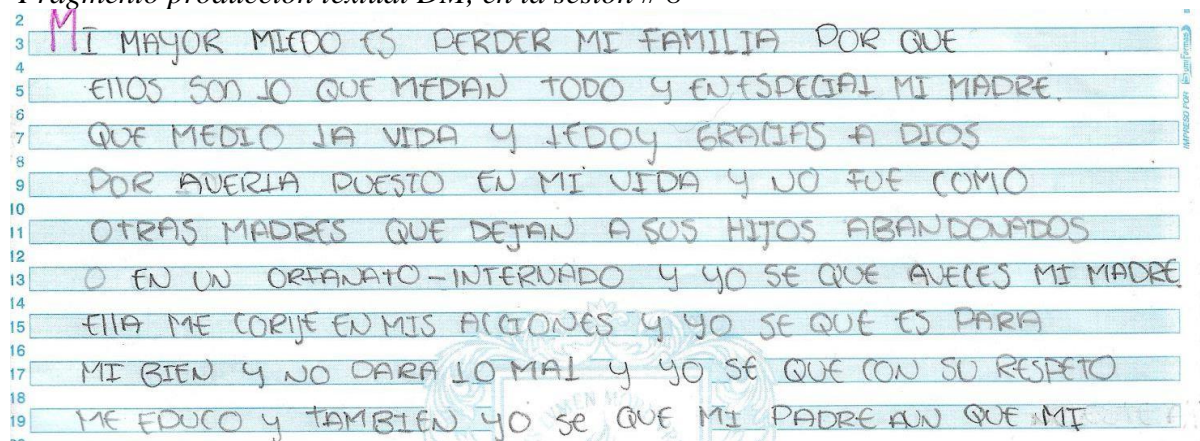 Fragmento producción textual DM, en la sesión # 8
2
3 MI MAYOR MIEDO ES PERDER MI FAMILIA POR QUE
4
5 EllOS SON LO QUE MEDAN TODO Y EN ESPECIAL MI MADRE.
6
7 QUE MEDIO LA VIDA Y LEDOY GRACIAS A DIOS
8
9 POR AVERLA PUESTO EN MI VIDA Y NO FUE COMO
10
11 OTRAS MADRES QUE DEJAN A SUS HIJOS ABANDONADOS
12
13 O EN UN ORFANATO-INTERNADO Y YO SE QUE AVECES MI MADRE
14
15 EllA ME CORIJE EN MIS ACCIONES Y YO SE QUE ES PARA
16
17 MI BIEN Y NO PARA LO MAL Y YO SE QUE CON SU RESPETO
18
19 ME EDUCO Y TAMBIEN YO SE QUE MI PADRE AUN QUE MI
IMPRESO POR